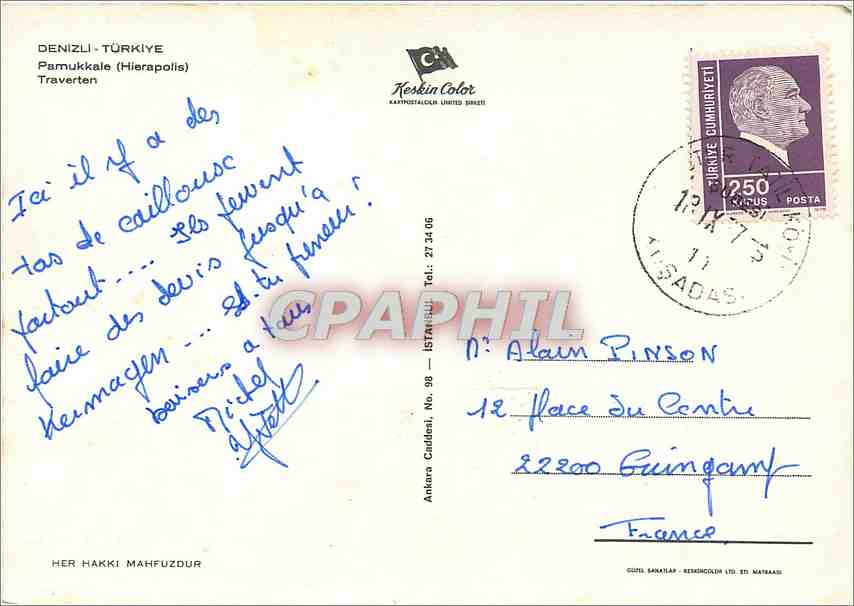 DENIZLI - TÜRKİYE
Pamukkale (Hierapolis)
Traverten
Keskin Color
KARTPOSTALCILIK LIMITED ŞİRKETİ
TÜRKİYE CUMHURİYETİ
250
KURUŞ POSTA
KUŞADASI
11
Ici il y a des
tas de cailloux
partout.... Ils peuvent
faire des devis jusqu'à
Kermagen...
baisers a tous
Ankara Caddesi, No. 98 — İSTANBUL Tel.: 27 34 06
CPAPHIL
Mr Alain PINSON
12 Place du Centre
22200 Guingamp
France
HER HAKKI MAHFUZDUR
GÜZEL SANATLAR - KESKİNCOLOR LTD. ŞTİ. MATBAASI